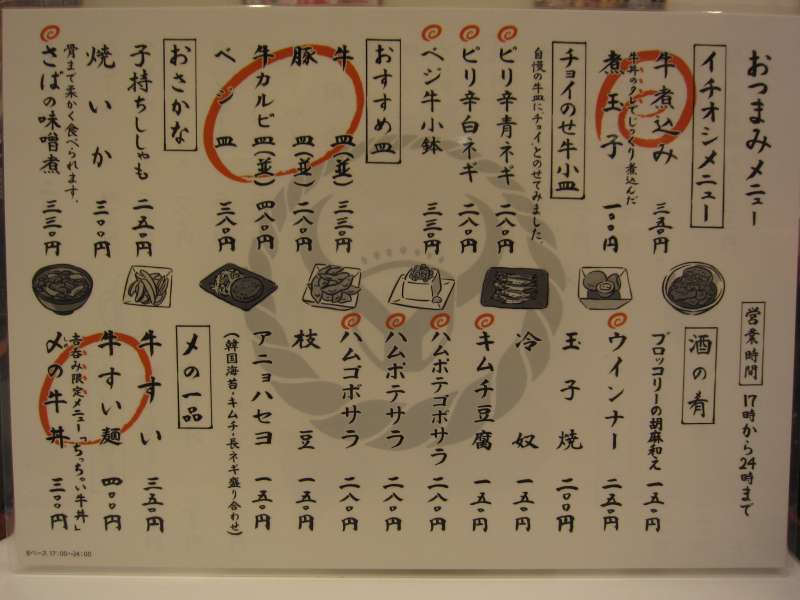 おつまみメニュー
営業時間 17時から24時まで
イチオシメニュー
牛煮込み 三五〇円
牛丼のタレでじっくり煮込んだ
煮玉子 一〇〇円
チョイのせ牛小皿
自慢の牛皿に「チョイ」とのせてみました。
ピリ辛青ネギ 二八〇円
ピリ辛白ネギ 二八〇円
ベジ牛小鉢 三三〇円
おすすめ皿
牛皿(並) 三三〇円
豚皿(並) 二八〇円
牛カルビ皿(並) 四八〇円
ベジ皿 三八〇円
おさかな
子持ちししゃも 二五〇円
焼いか 三〇〇円
骨まで柔かく食べられます。
さばの味噌煮 三三〇円
酒の肴
ブロッコリーの胡麻和え 一五〇円
ウインナー 二五〇円
玉子焼 二〇〇円
冷奴 一五〇円
キムチ豆腐 一五〇円
ハムポテゴボサラ 二八〇円
ハムポテサラ 二八〇円
ハムゴボサラ 二八〇円
枝豆 一五〇円
アニョハセヨ 一五〇円
(韓国海苔・キムチ・長ネギ盛り合わせ)
〆の一品
牛すい 三五〇円
牛すい麺 四〇〇円
吉呑み限定メニュー「ちっちゃい牛丼」
〆の牛丼 三〇〇円
17:00~24:00